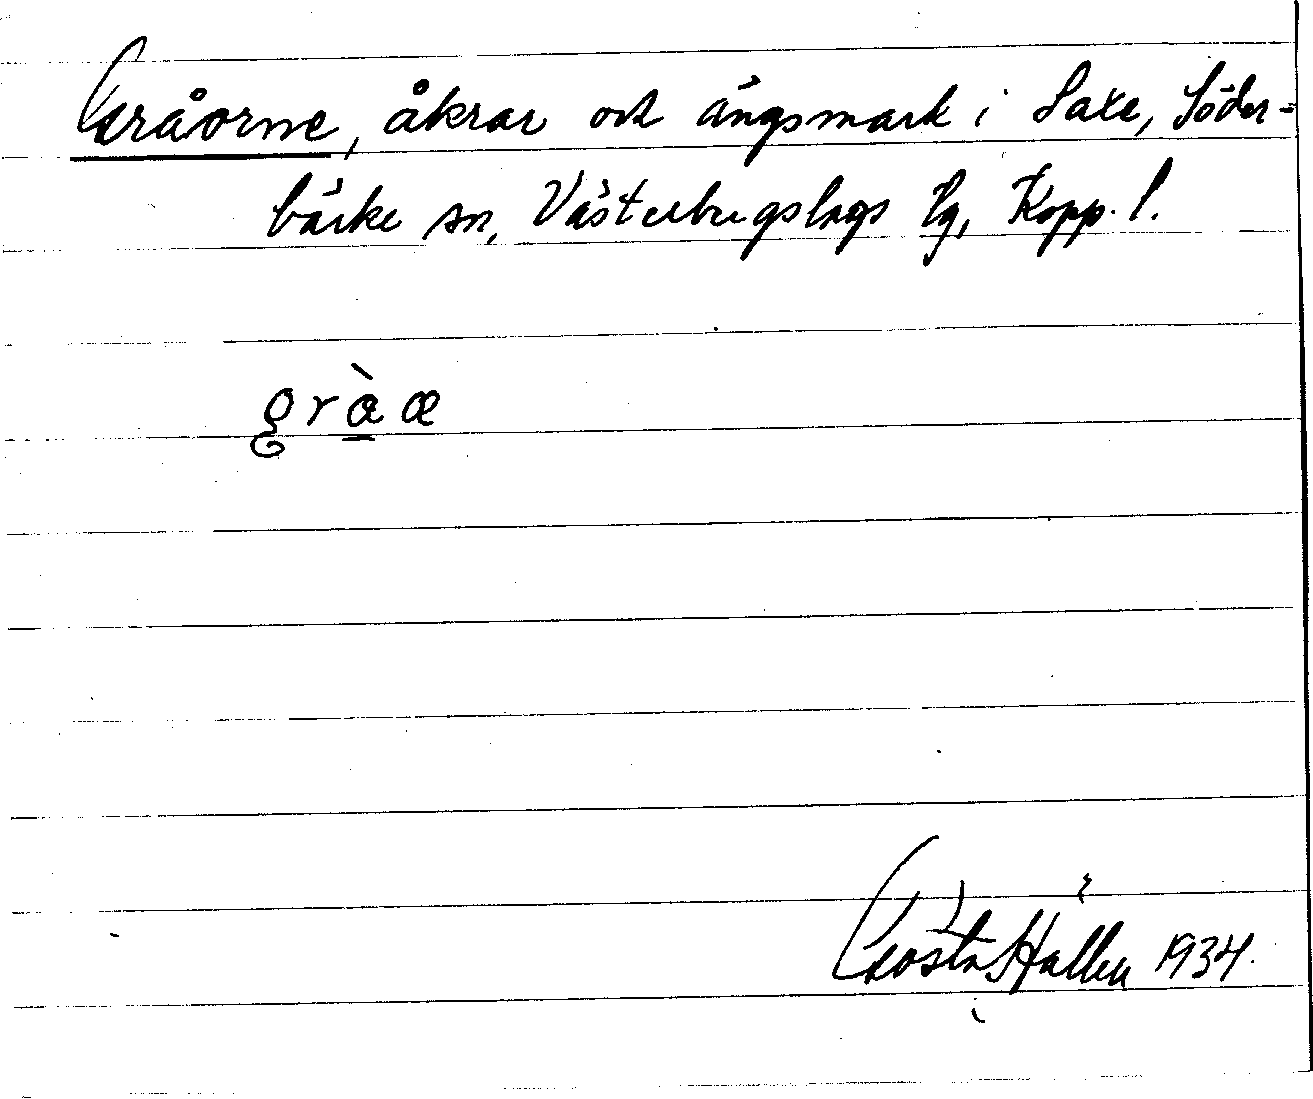 Gråorne, åkrar och ängsmark i Saxe, Söder-
bärke sn, Västerbergslags tg, Kopp. l.
gràæ
Gösta Hallén 1934.